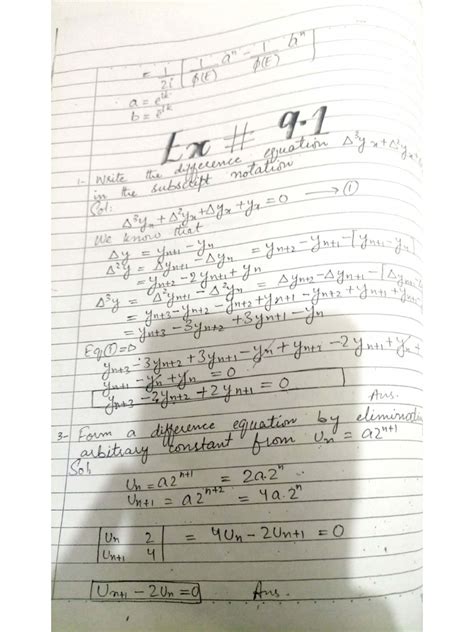 = 1/2i [ 1/φ(E) aⁿ - 1/φ(E) bⁿ ]
a = e^ik
b = e^ik
Ex # 9.1
1- Write the difference equation Δ³yx + Δ²yx +
in the subscript notation
Sol:
Δ³yx + Δ²yx + Δyx + yx = 0 → ①
We know that
Δy = yn+1 - yn
Δ²y = Δyn+1 - Δyn = yn+2 - yn+1 - [yn+1 - yn]
= yn+2 - 2yn+1 + yn
Δ³y = Δ²yn+1 - Δ²yn = Δyn+2 - Δyn+1 - [Δ
= yn+3 - yn+2 - yn+2 + yn+1 - yn+2 + yn+1 +
= yn+3 - 3yn+2 + 3yn+1 - yn
Eq ① ⇒
yn+3 - 3yn+2 + 3yn+1 - yn + yn+2 - 2yn+1 + yn +
yn+1 - yn + yn = 0
yn+3 - 2yn+2 + 2yn+1 = 0
Ans.
3- Form a difference equation by eliminatin
arbitrary constant from Un = a2ⁿ⁺¹
Sol
Un = a2ⁿ⁺¹ = 2a.2ⁿ
Un+1 = a2ⁿ⁺² = 4a.2ⁿ
| Un 2 | = 4Un - 2Un+1 = 0
| Un+1 4 |
Un+1 - 2Un = 0 Ans.